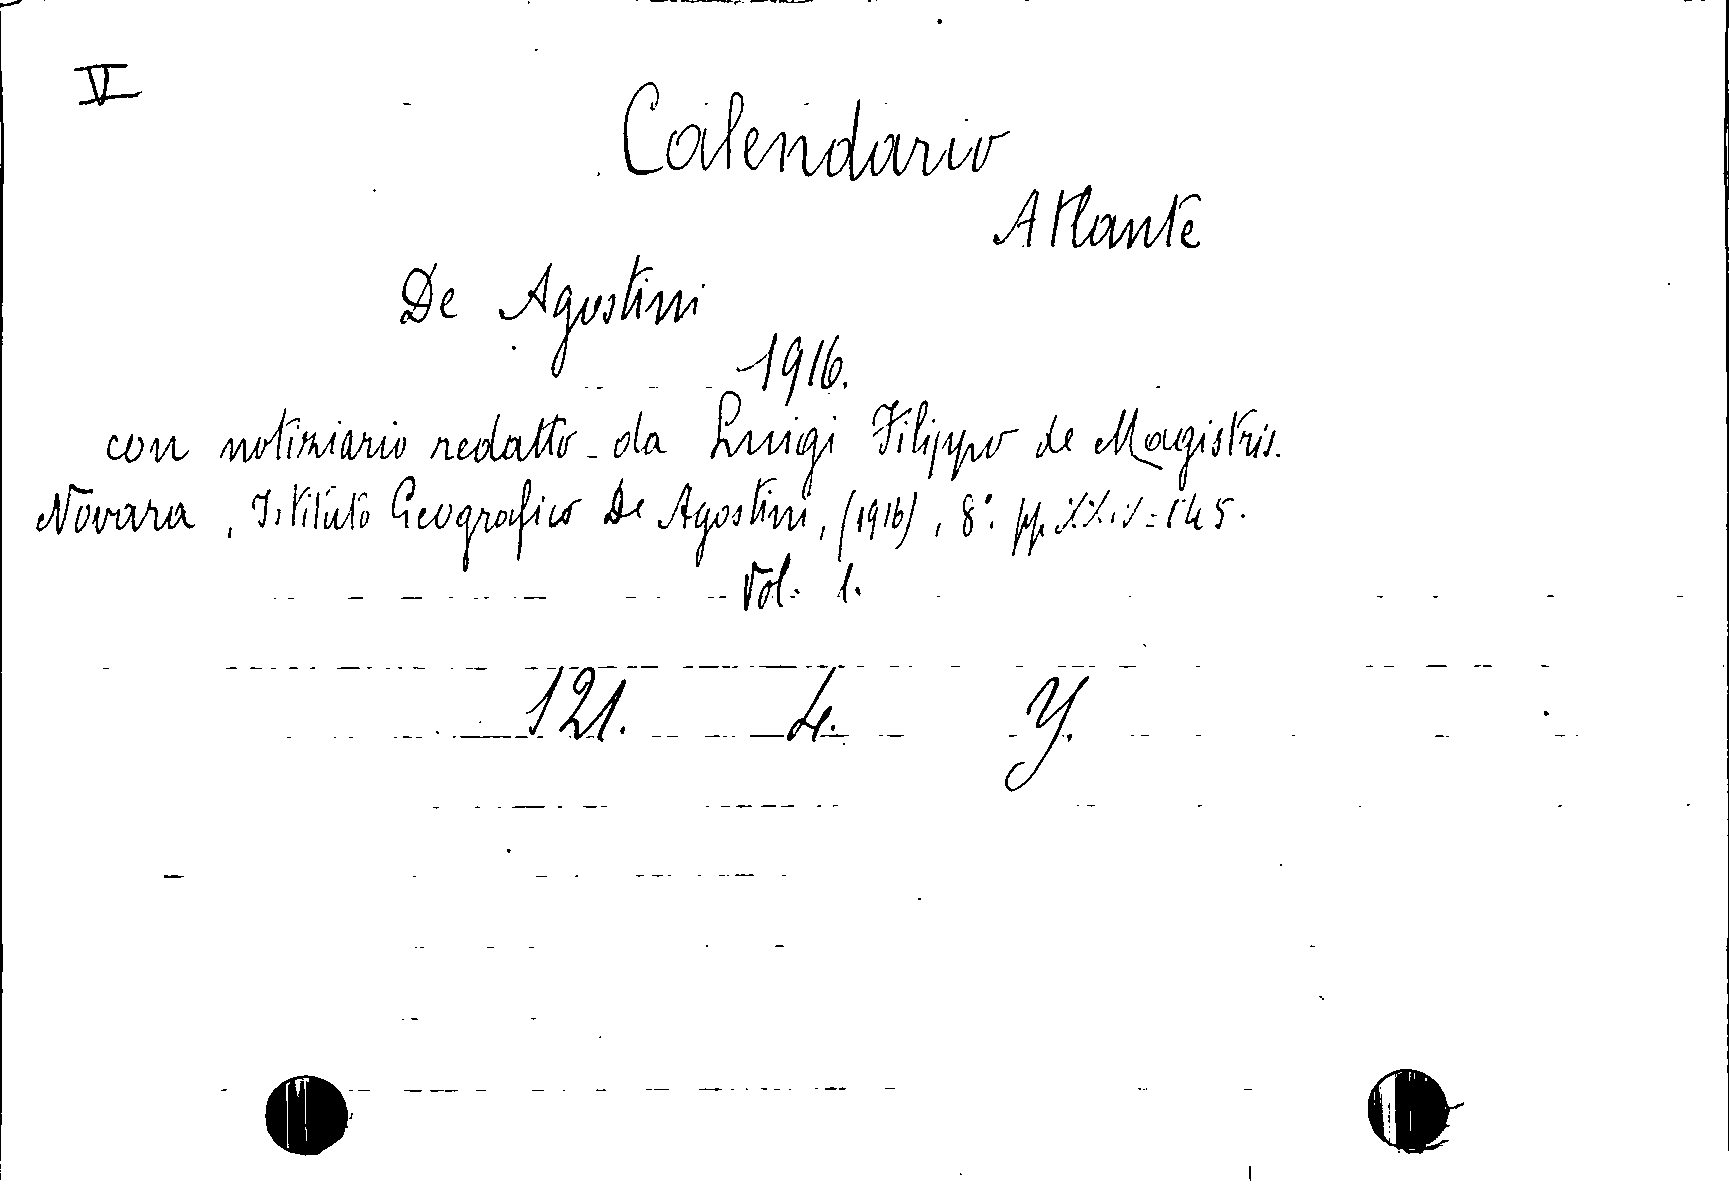 V
Calendario
Atlante
De Agostini
1916.
con notiziario redatto da Luigi Filippo de Magistris.
Novara, Istituto Geografico De Agostini, (1916), 8° pp.
Vol. 1.
121. 4. Y.